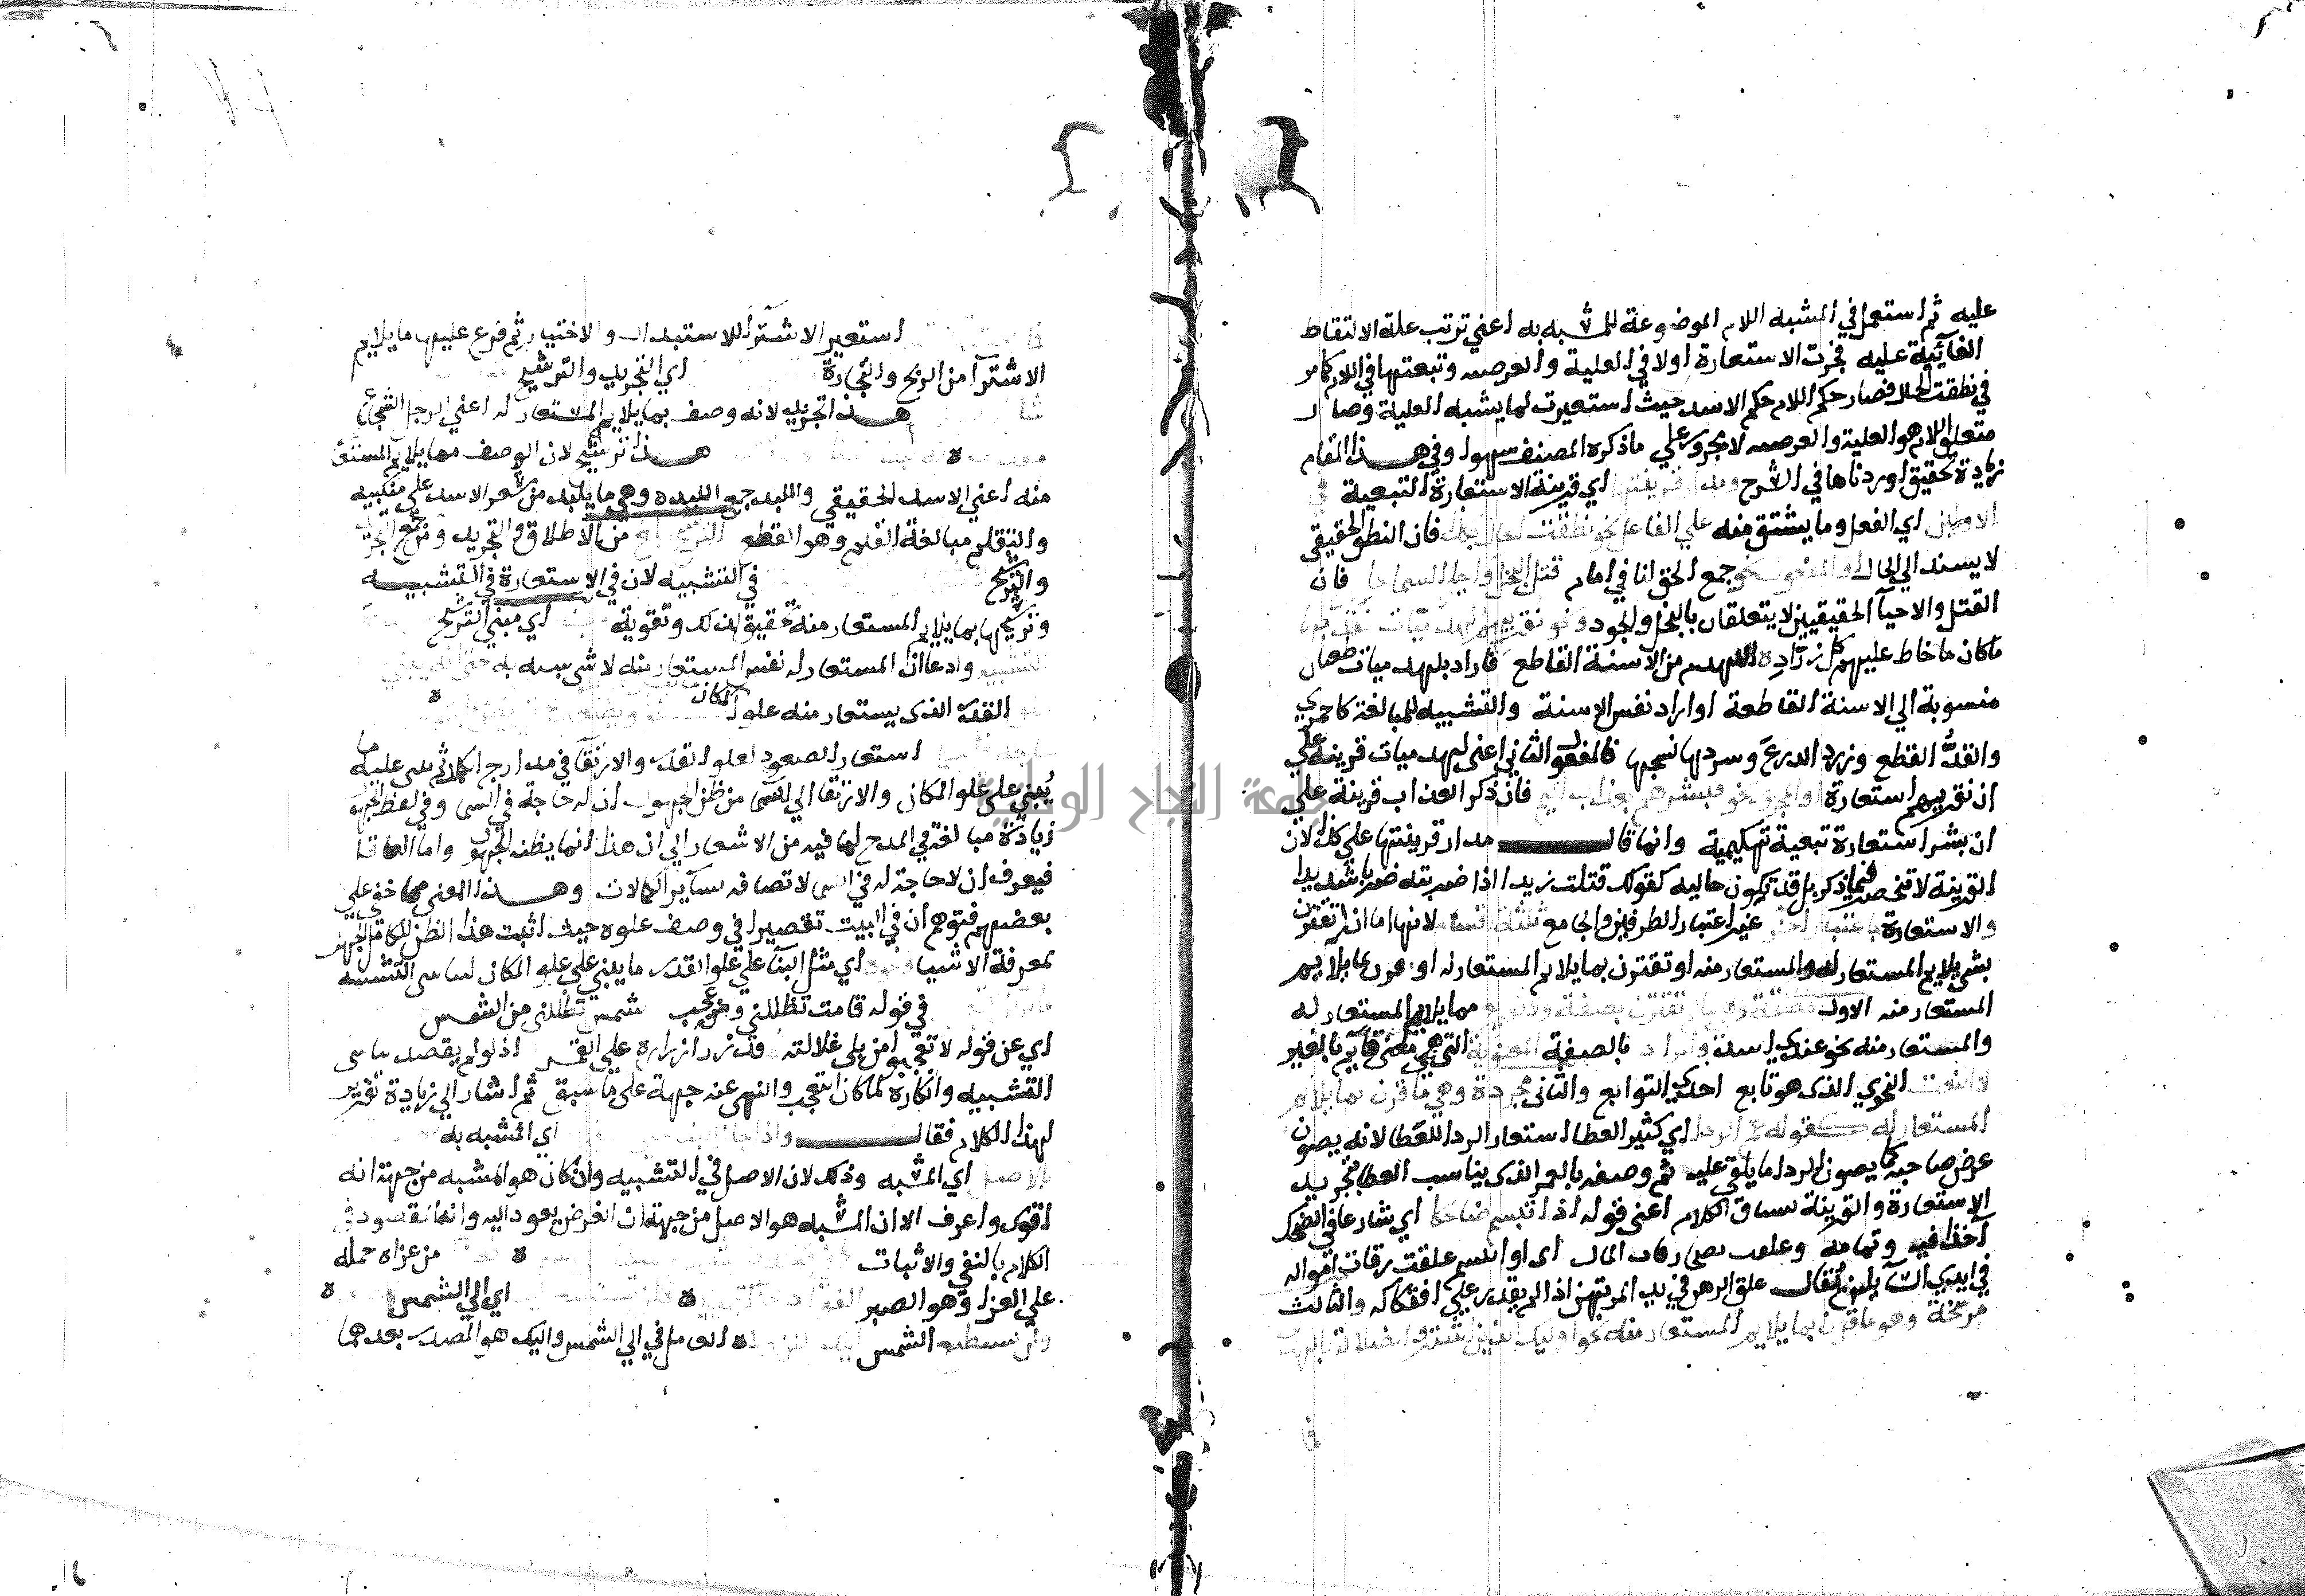 عليه ثم استعمل في المشبه اللام الموضوعة للمشبه به اعني ترتب علة الالتقاط
الغائية عليه فجرت الاستعارة اولا في العلية والغرضيه وتبعتها في اللام كما مر
في نطقت الحال فصار حكم اللام حكم الاسد حيث استعيرت لما يشبه العلية وصار
متعلق اللام هو العلية والغرضيه لا المجرور علي ما ذكره المصنف سهوا وفي هذا المقام
زيادة تحقيق اوردناها في الشرح ومدار قرينتها اي قرينة الاستعارة التبعية في
الاولين اي الفعل وما يشتق منه علي الفاعل نحو نطقت الحال بكذا فان النطق الحقيقي
لا يسند الي الحال او المفعول نحو جمع الحق لنا في امام قتل البخل واحيا السماحا فان
القتل والاحيآ الحقيقيين لا يتعلقان بالبخل والجود ونحو نقريهم لهذميات نقد بها
ما كان خاط عليهم كل زرّاد اللهذم من الاسنة القاطع فاراد بلهذميات طعنات
منسوبة الي الاسنة القاطعة او اراد نفس الاسنة والتشبيه للمبالغة كاحمري
والقدُّ القطع وزرد الدرعَ وسردها نسجها فالمفعول الثاني اعني لهذميات قرينة علي
ان نقريهم استعارة او المجرور نحو فبشرهم بعذاب اليم فان ذكر العذاب قرينة علي
ان بشر استعارة تبعية تهكمية وانما قال مدار قرينتها علي كذا لان
القرينة لا تنحصر فيما ذكر بل قد تكون حاليه كقولك قتلت زيدا اذا ضربته ضربا شديدا
والاستعارة باعتبار اخر غير اعتبار الطرفين والجامع ثلثة اقسام لانها اما ان لا تقترن
بشي يلايم المستعار له والمستعار منه او تقترن بما يلايم المستعار له او تقرن بما يلايم
المستعار منه الاول مطلقة وهي ما لم تقترن بصفة ولا تفريع مما يلايم المستعار له
والمستعار منه نحو عندي اسد والمراد بالصفة المعنوية التي هي معنى قايم بالغير
لا النعت النحوي الذي هو تابع احدي التوابع والثاني مجردة وهي ما قرن بما يلايم
المستعار له كقوله غمر الردا اي كثير العطا استعار الردا للعطا لانه يصون
عرض صاحبه كما يصون الردا ما يلقي عليه ثم وصفه بالغمر الذي يناسب العطا تجريد
الاستعارة والقرينة سياق الكلام اعني قوله اذا تبسم ضاحكا اي شارعا في الضحك
آخذا فيه وتمامه وغلقت بضحكته رقاب المال اي اذا تبسم غلقت رقاب امواله
في ايدي السايلين يقال غلق الرهن في يد المرتهن اذا لم يقدر علي افتكاكه والثالث
مرشحة وهو ما قرن بما يلايم المستعار منه نحو اوليك الذين اشتروا الضلالة بالهدي
استعير الاشترآ للاستبدال والاختيار ثم فرع عليها ما يلايم
الاشترآ من الربح والتجارة اي التجريد والترشيح
هذا تجريد لانه وصف بما يلايم المستعار له اعني الرجل الشجاع
هذا ترشيح لان الوصف مما يلايم المستعار
منه اعني الاسد الحقيقي واللبد جمع اللبدة وهي ما يتلبد من شعر الاسد علي منكبيه
والتقليم مبالغة القلم وهو القطع الترشيح ابلغ من الاطلاق والتجريد ومن جمع التجريد
والترشيح في التشبيه لان في الاستعارة في التشبيه
وترشيحها بما يلايم المستعار منه تحقيق لذلك وتقوية اي مبني الترشيح
التشبيه وادعا ان المستعار له نفس المستعار منه لا شي شبيه به حتى انه يبني
علو القدر الذي يستعار منه علو المكان
استعار الصعود لعلو القدر والارتقا في مدارج الكمال ثم بني عليه ما
يُبني علي علو المكان والارتقا الي السما من ظن الجهول ان له حاجة في السما وفي لفظ الجهول
زيادة مبالغة في المدح لما فيه من الاشعار الي ان هذا انما يظنه الجهول واما العاقل
فيعرف ان لا حاجة له في السما لاتصافه بساير الكمالات وهذا المعني مما خفي علي
بعضهم فتوهم ان في البيت تقصيرا في وصف علوه حيث اثبت هذا الظن للكامل الجهل
بمعرفة الاشيا اي مثل البنآ علي علو القدر ما يبني علي علو المكان لتناسي التشبيه
في قوله قامت تظللني ومن عجب شمس تظللني من الشمس
اي عن قوله لا تعجبوا من بلي غلالته قد زر ازراره علي القمر اذ لو لم يقصد تناسي
التشبيه وانكاره لما كان التعجب والنهي عنه جهة على ما سبق ثم اشار الي زيادة تقرير
لهذا الكلام فقال واذا جاز البنا اي المشبه به
الاصل اي المشبه وذلك لان الاصل في التشبيه وان كان هو المشبه من جهة انه
اقوي واعرف الا ان المشبه هو الاصل من جهة ان الغرض يعود اليه وانه المقصود في
الكلام بالنفي والاثبات من عزاه حمله
علي العزا وهو الصبر اي الي الشمس
ولن تستطيع الشمس العامل في الي الشمس واليك هو المصدر بعدهما
جامعة النجاح الوطنية